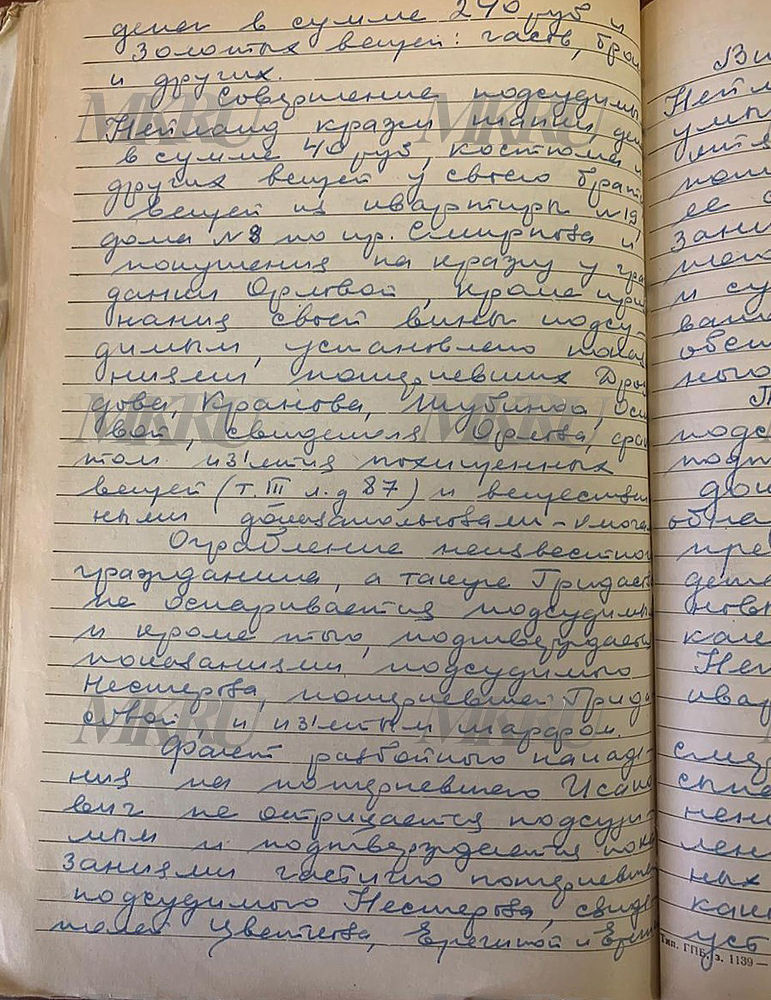 денег в сумме 240 руб и
золотых вещей: часов, бро
и других.
Совершение подсудимым
Нейланд кражи денег
в сумме 40 руб, костюма и
других вещей у своего брата
вещей из квартиры №19,
дома №8 по пр. Смирнова и
покушения на кражу у граж
данки Орловой, кроме приз
нания своей вины подсу-
димым, установлено показа
ниями потерпевших Дроз
дова, Кранова, Шубиной, Орло
вой, свидетеля Орлова,
том из'ятия похищенных
вещей (т. III л. д 87) и веществен
ными доказательствами-
Ограбление неизвестного
гражданина, а также Гридасовой
не оспаривается подсудимым
и кроме того, подтверждается
показаниями подсудимого
Нестерова, потерпевшей Грида
совой, и из'ятым шарфом.
Факт разбойного нападе
ния на потерпевшего Исако
вич не отрицается подсуди-
мым и подтверждается пока
заниями частично потерпевшего
подсудимого Нестерова, свиде
телей Цветкова,
Нейл
умы
её
зани
и су
вани
обст
ного
подс
подт
обла
пре
дете
новы
как
Ней
квар
нени
лен
ных
как
уст
Тип. ГПБ. з. 1139—
MKRU MKRU
MKRU MKRU
MKRU MKRU